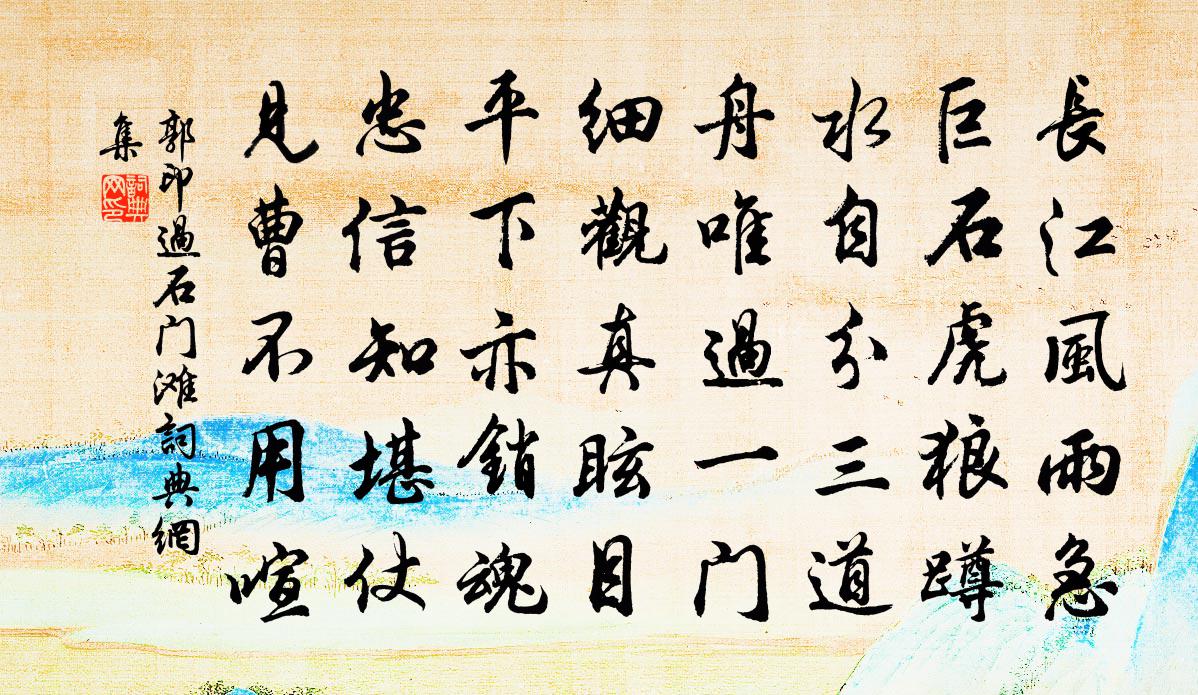 長江風雨急
巨石虎狼蹲
水自分三道
舟唯過一门
細觀真眩目
平下亦銷魂
忠信知堪仗
見曹不用喧
郭印過石门滩詞典網
集
詞典
网印